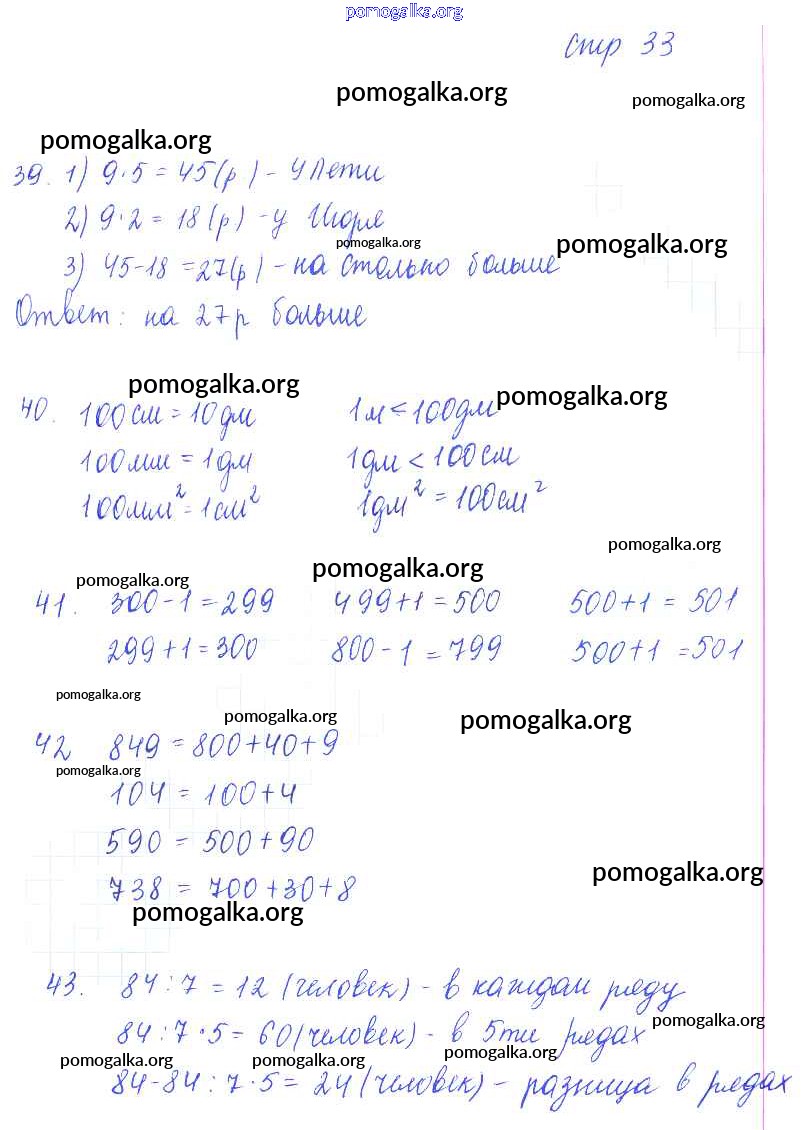 pomogalka.org
стр 33
pomogalka.org pomogalka.org
pomogalka.org
39. 1) 9·5 = 45(р) - у Пети
2) 9·2 = 18(р) - у Игоря
pomogalka.org pomogalka.org
3) 45-18 = 27(р) - на столько больше
Ответ: на 27р больше
pomogalka.org pomogalka.org
40. 100см = 10дм 1м < 100дм
100мм = 1дм 1дм < 100см
100мм² = 1см² 1дм² = 100см²
pomogalka.org
pomogalka.org pomogalka.org
41. 300-1 = 299 499+1 = 500 500+1 = 501
299+1 = 300 800-1 = 799 500+1 = 501
pomogalka.org
pomogalka.org pomogalka.org
42 849 = 800+40+9
pomogalka.org
104 = 100+4
590 = 500+90
738 = 700+30+8
pomogalka.org
pomogalka.org
43. 84:7 = 12 (человек) - в каждом ряду
84:7·5 = 60(человек) - в 5ти рядах
pomogalka.org
pomogalka.org pomogalka.org pomogalka.org
84-84:7·5 = 24(человек) - разница в рядах